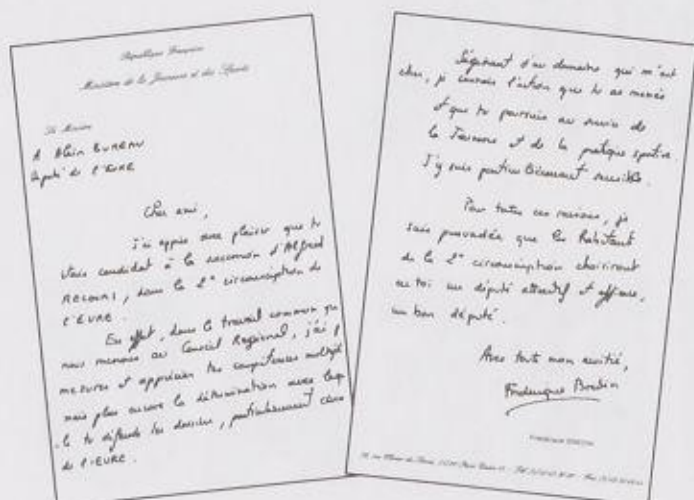 République Française
Ministère de la Jeunesse et des Sports
Le Ministre
A Alain BUREAU
Député de l'EURE
Cher ami,
J'ai appris avec plaisir que tu
étais candidat à la succession d'Alfred
RECOURS, dans la 2e circonscription de
l'EURE.
En effet, dans le travail commun que
nous menons au Conseil Régional, j'ai pu
mesurer et apprécier tes compétences multiples
mais plus encore la détermination avec laquel
le tu défends les dossiers, particulièrement ceux
de l'EURE.
S'agissant d'un domaine qui m'est
cher, je connais l'action que tu as menée
et que tu poursuis au service de
la Jeunesse et de la pratique sportive.
J'y suis particulièrement sensible.
Pour toutes ces raisons, je
suis persuadée que les habitants
de la 2e circonscription choisiront
en toi un député attentif et efficace,
un bon député.
Avec toute mon amitié,
Frédérique Bredin
Frédérique BREDIN